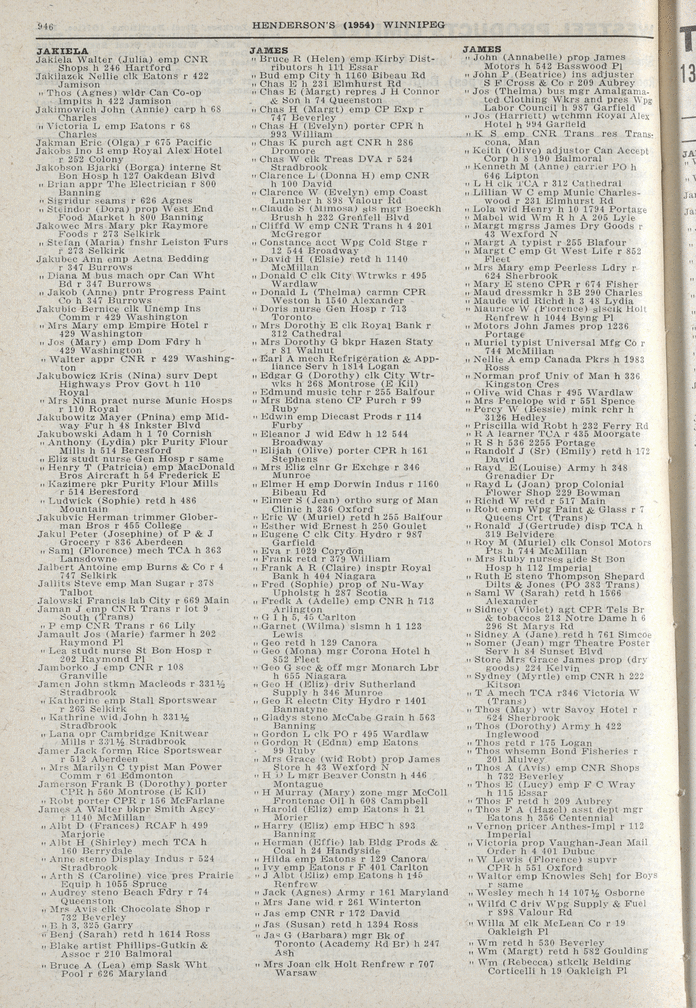 946
HENDERSON'S (1954) WINNIPEG
JAKIELA
Jakiela Walter (Julia) emp CNR
Shops h 246 Hartford
Jakilazek Nellie clk Eatons r 422
Jamison
" Thos (Agnes) wldr Can Co-op
Impits h 422 Jamison
Jakimowich John (Annie) carp h 68
Charles
" Victoria L emp Eatons r 68
Charles
Jakman Eric (Olga) r 675 Pacific
Jakobs Ino B emp Royal Alex Hotel
r 252 Colony
Jakobson Bjarki (Borga) interne St
Bon Hosp h 127 Oakdean Blvd
" Brian appr The Electrician r 800
Banning
" Sigridur seams r 626 Agnes
" Steindor (Dora) prop West End
Food Market h 800 Banning
Jakowec Mrs Mary pkr Raymore
Foods r 273 Selkirk
" Stefan (Maria) fnshr Leiston Furs
r 273 Selkirk
Jakubec Ann emp Aetna Bedding
r 347 Burrows
" Diana M bus mach opr Can Wht
Bd r 347 Burrows
" Jakob (Anne) pntr Progress Paint
Co h 347 Burrows
Jakubic Bernice clk Unemp Ins
Comm r 429 Washington
" Mrs Mary emp Empire Hotel r
429 Washington
" Jos (Mary) emp Dom Fdry h
429 Washington
" Walter appr CNR r 429 Washing-
ton
Jakubowicz Kris (Nina) surv Dept
Highways Prov Govt h 110
Royal
" Mrs Nina pract nurse Munic Hosps
r 110 Royal
Jakubowitz Mayer (Pnina) emp Mid-
way Fur h 48 Inkster Blvd
Jakubowski Adam h 1 70 Cornish
" Anthony (Lydia) pkr Purity Flour
Mills h 514 Beresford
" Eliz studt nurse Gen Hosp r same
" Henry T (Patricia) emp MacDonald
Bros Aircraft h 54 Frederick E
" Kazimere pkr Purity Flour Mills
r 514 Beresford
" Ludwick (Sophie) retd h 486
Mountain
Jakubvic Herman trimmer Glober-
man Bros r 455 College
Jakul Peter (Josephine) of P & J
Grocery r 836 Aberdeen
" Saml (Florence) mech TCA h 363
Lansdowne
Jalbert Antoine emp Burns & Co r 4
747 Selkirk
Jallits Steve emp Man Sugar r 378
Talbot
Jalowski Francis lab City r 669 Main
Jaman J emp CNR Trans r lot 9
South (Trans)
" P emp CNR Trans r 66 Lily
Jamault Jos (Marie) farmer h 202
Raymond Pl
" Lea studt nurse St Bon Hosp r
202 Raymond Pl
Jamborko J emp CNR r 108
Granville
Jamen John stkmn Macleods r 331½
Stradbrook
" Katherine emp Stall Sportswear
r 263 Selkirk
" Kathrine wid John h 331½
Stradbrook
" Lana opr Cambridge Knitwear
Mills r 331½ Stradbrook
Jamer Jack formn Rice Sportswear
r 512 Aberdeen
" Mrs Marilyn C typist Man Power
Comm r 61 Edmonton
Jamerson Frank B (Dorothy) porter
CPR h 560 Montrose (E Kil)
" Robt porter CPR r 156 McFarlane
James A Walter bkpr Smith Agcy
r 1140 McMillan
" Albt D (Frances) RCAF h 499
Marjorie
" Albt H (Shirley) mech TCA h
160 Berrydale
" Anne steno Display Indus r 524
Stradbrook
" Arth S (Caroline) vice pres Prairie
Equip h 1055 Spruce
" Audrey steno Beach Fdry r 74
Queenston
" Mrs Avis clk Chocolate Shop r
732 Beverley
" B h 3, 325 Garry
" Benj (Sarah) retd h 1614 Ross
" Blake artist Phillips-Gutkin &
Assoc r 210 Balmoral
" Bruce A (Lea) emp Sask Wht
Pool r 626 Maryland
JAMES
" Bruce R (Helen) emp Kirby Dist-
ributors h 111 Essar
" Bud emp City h 1160 Bibeau Rd
" Chas E h 231 Elmhurst Rd
" Chas E (Margt) repres J H Connor
& Son h 74 Queenston
" Chas H (Margt) emp CP Exp r
747 Beverley
" Chas H (Evelyn) porter CPR h
993 William
" Chas K purch agt CNR h 286
Dromore
" Chas W clk Treas DVA r 524
Stradbrook
" Clarence L (Donna H) emp CNR
h 100 David
" Clarence W (Evelyn) emp Coast
Lumber h 898 Valour Rd
" Claude S (Mimosa) gls mgr Boeckh
Brush h 232 Grenfell Blvd
" Cliffd W emp CNR Trans h 4 201
McGregor
" Constance acct Wpg Cold Stge r
12 544 Broadway
" David H (Elsie) retd h 1140
McMillan
" Donald C clk City Wtrwks r 495
Wardlaw
" Donald L (Thelma) carmn CPR
Weston h 1540 Alexander
" Doris nurse Gen Hosp r 713
Toronto
" Mrs Dorothy E clk Royal Bank r
312 Cathedral
" Mrs Dorothy G bkpr Hazen Staty
r 81 Walnut
" Earl A mech Refrigeration & App-
liance Serv h 1814 Logan
" Edgar G (Dorothy) clk City Wtr-
wks h 268 Montrose (E Kil)
" Edmund music tchr r 255 Balfour
" Mrs Edna steno CP Purch r 99
Ruby
" Edwin emp Diecast Prods r 114
Furby
" Eleanor J wid Edw h 12 544
Broadway
" Elijah (Olive) porter CPR h 161
Stephens
" Mrs Eliz clnr Gr Exchge r 346
Munroe
" Elmer H emp Dorwin Indus r 1160
Bibeau Rd
" Elmer S (Jean) ortho surg of Man
Clinic h 336 Oxford
" Eric W (Muriel) retd h 255 Balfour
" Esther wid Ernest h 250 Goulet
" Eugene C clk City Hydro r 987
Garfield
" Eva r 1029 Corydon
" Frank retd r 379 William
" Frank A R (Claire) insptr Royal
Bank h 404 Niagara
" Fred (Sophie) prop of Nu-Way
Upholstg h 287 Scotia
" Fredk A (Adelle) emp CNR h 713
Arlington
" G I h 5, 45 Carlton
" Garnet (Wilma) slsmn h 1 123
Lewis
" Geo retd h 129 Canora
" Geo (Mona) mgr Corona Hotel h
852 Fleet
" Geo G sec & off mgr Monarch Lbr
h 655 Niagara
" Geo H (Eliz) driv Sutherland
Supply h 346 Munroe
" Geo R electn City Hydro r 1401
Bannatyne
" Gladys steno McCabe Grain h 563
Banning
" Gordon L clk PO r 495 Wardlaw
" Gordon R (Edna) emp Eatons
99 Ruby
" Mrs Grace (wid Robt) prop James
Store h 43 Wexford N
" H D L mgr Beaver Constn h 446
Montague
" H Murray (Mary) zone mgr McColl
Frontenac Oil h 608 Campbell
" Harold (Eliz) emp Eatons h 21
Morier
" Harry (Eliz) emp HBC h 893
Banning
" Herman (Effie) lab Bldg Prods &
Coal h 24 Handyside
" Hilda emp Eatons r 129 Canora
" Ivy emp Eatons r F 401 Carlton
" J Albt (Eliz) emp Eatons h 145
Renfrew
" Jack (Agnes) Army r 161 Maryland
" Mrs Jane wid r 261 Winterton
" Jas emp CNR r 172 David
" Jas (Susan) retd h 1394 Ross
" Jas G (Barbara) mgr Bk of
Toronto (Academy Rd Br) h 247
Ash
" Mrs Joan clk Holt Renfrew r 707
Warsaw
JAMES
" John (Annabelle) prop James
Motors h 542 Basswood Pl
" John P (Beatrice) ins adjuster
S F Cross & Co r 209 Aubrey
" Jos (Thelma) bus mgr Amalgama-
ted Clothing Wkrs and pres Wpg
Labor Council h 987 Garfield
" Jos (Harriett) wtchmn Royal Alex
Hotel h 994 Garfield
" K S emp CNR Trans res Trans-
cona, Man
" Keith (Olive) adjustor Can Accept
Corp h 8 190 Balmoral
" Kenneth M (Annie) carrier PO h
646 Lipton
" L H clk TCA r 312 Cathedral
" Lillian W C emp Munic Charles-
wood r 231 Elmhurst Rd
" Lola wid Henry h 10 1794 Portage
" Mabel wid Wm R h A 205 Lyle
" Margt mgrss James Dry Goods r
43 Wexford N
" Margt A typist r 255 Balfour
" Margt C emp Gt West Life r 852
Fleet
" Mrs Mary emp Peerless Ldry r
624 Sherbrook
" Mary E steno CPR r 674 Fisher
" Maud dressmkr h 3B 290 Charles
" Maude wid Richd h 3 48 Lydia
" Maurice W (Florence) slsclk Holt
Renfrew h 1044 Byng Pl
" Motors John James prop 1236
Portage
" Muriel typist Universal Mfg Co r
744 McMillan
" Nellie A emp Canada Pkrs h 1983
Ross
" Norman prof Univ of Man h 336
Kingston Cres
" Olive wid Chas r 495 Wardlaw
" Mrs Penelope wid r 551 Spence
" Percy W (Bessie) mink rchr h
3126 Hedley
" Priscilla wid Robt h 232 Ferry Rd
" R A learner TCA r 435 Moorgate
" R S h 536 2255 Portage
" Randolf J (Sr) (Emily) retd h 172
David
" Rayd E (Louise) Army h 348
Grenadier Dr
" Rayd L (Joan) prop Colonial
Flower Shop 229 Bowman
" Richd W retd r 517 Main
" Robt emp Wpg Paint & Glass r 7
Queens Crt (Trans)
" Ronald J (Gertrude) disp TCA h
319 Belvidere
" Roy M (Muriel) clk Consol Motors
Pts h 744 McMillan
" Mrs Ruby nurses aide St Bon
Hosp h 112 Imperial
" Ruth E steno Thompson Shepard
Dilts & Jones (PO 383 Trans)
" Saml W (Sarah) retd h 1566
Alexander
" Sidney (Violet) agt CPR Tels Br
& tobaccos 213 Notre Dame h 6
296 St Marys Rd
" Sidney A (Jane) retd h 761 Simcoe
" Somer (Jean) mgr Theatre Poster
Serv h 84 Sunset Blvd
" Store Mrs Grace James prop (dry
goods) 224 Kelvin
" Sydney (Myrtle) emp CNR h 222
Kitson
" T A mech TCA r346 Victoria W
(Trans)
" Thos (May) wtr Savoy Hotel r
624 Sherbrook
" Thos (Dorothy) Army h 422
Inglewood
" Thos retd r 175 Logan
" Thos whsemn Bond Fisheries r
201 Mulvey
" Thos A (Avis) emp CNR Shops
h 732 Beverley
" Thos E (Lucy) emp F C Wray
h 115 Essar
" Thos F retd h 209 Aubrey
" Thos F A (Hazel) asst dept mgr
Eatons h 356 Centennial
" Vernon pricer Anthes-Impl r 112
Imperial
" Victoria prop Vaughan-Jean Mail
Order h 4 401 Dubuc
" W Lewis (Florence) supvr
CPR h 551 Oxford
" Walter emp Knowles Schl for Boys
r same
" Wesley mech h 14 107½ Osborne
" Wilfd C driv Wpg Supply & Fuel
r 898 Valour Rd
" Willa M clk McLean Co r 19
Oakleigh Pl
" Wm retd h 530 Beverley
" Wm (Margt) retd h 582 Goulding
" Wm (Rebecca) stkclk Belding
Corticelli h 19 Oakleigh Pl